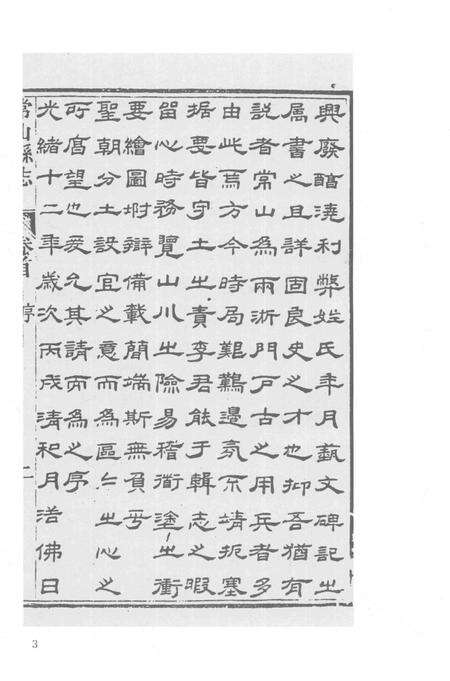 興廢醕澆利弊姓氏年月藝文碑記㞢
屬書之且詳固良史之才也抑吾猶有
說者常山為兩浙門戶古之用兵者多
由此焉方今時局艱難邊氛不靖扼塞
据要皆守土㞢責李君能于輯志之暇
留心時務覽山川㞢險易稽衜塗㞢衝
要繪圖坿辯備載簡端斯無負乎
聖朝分土設宜之意而為區〻㞢心之
所厚望也爰允其請而為之序
光緒十二年歲次丙戌清和月浴佛日
常山縣志 卷首 序 二
3